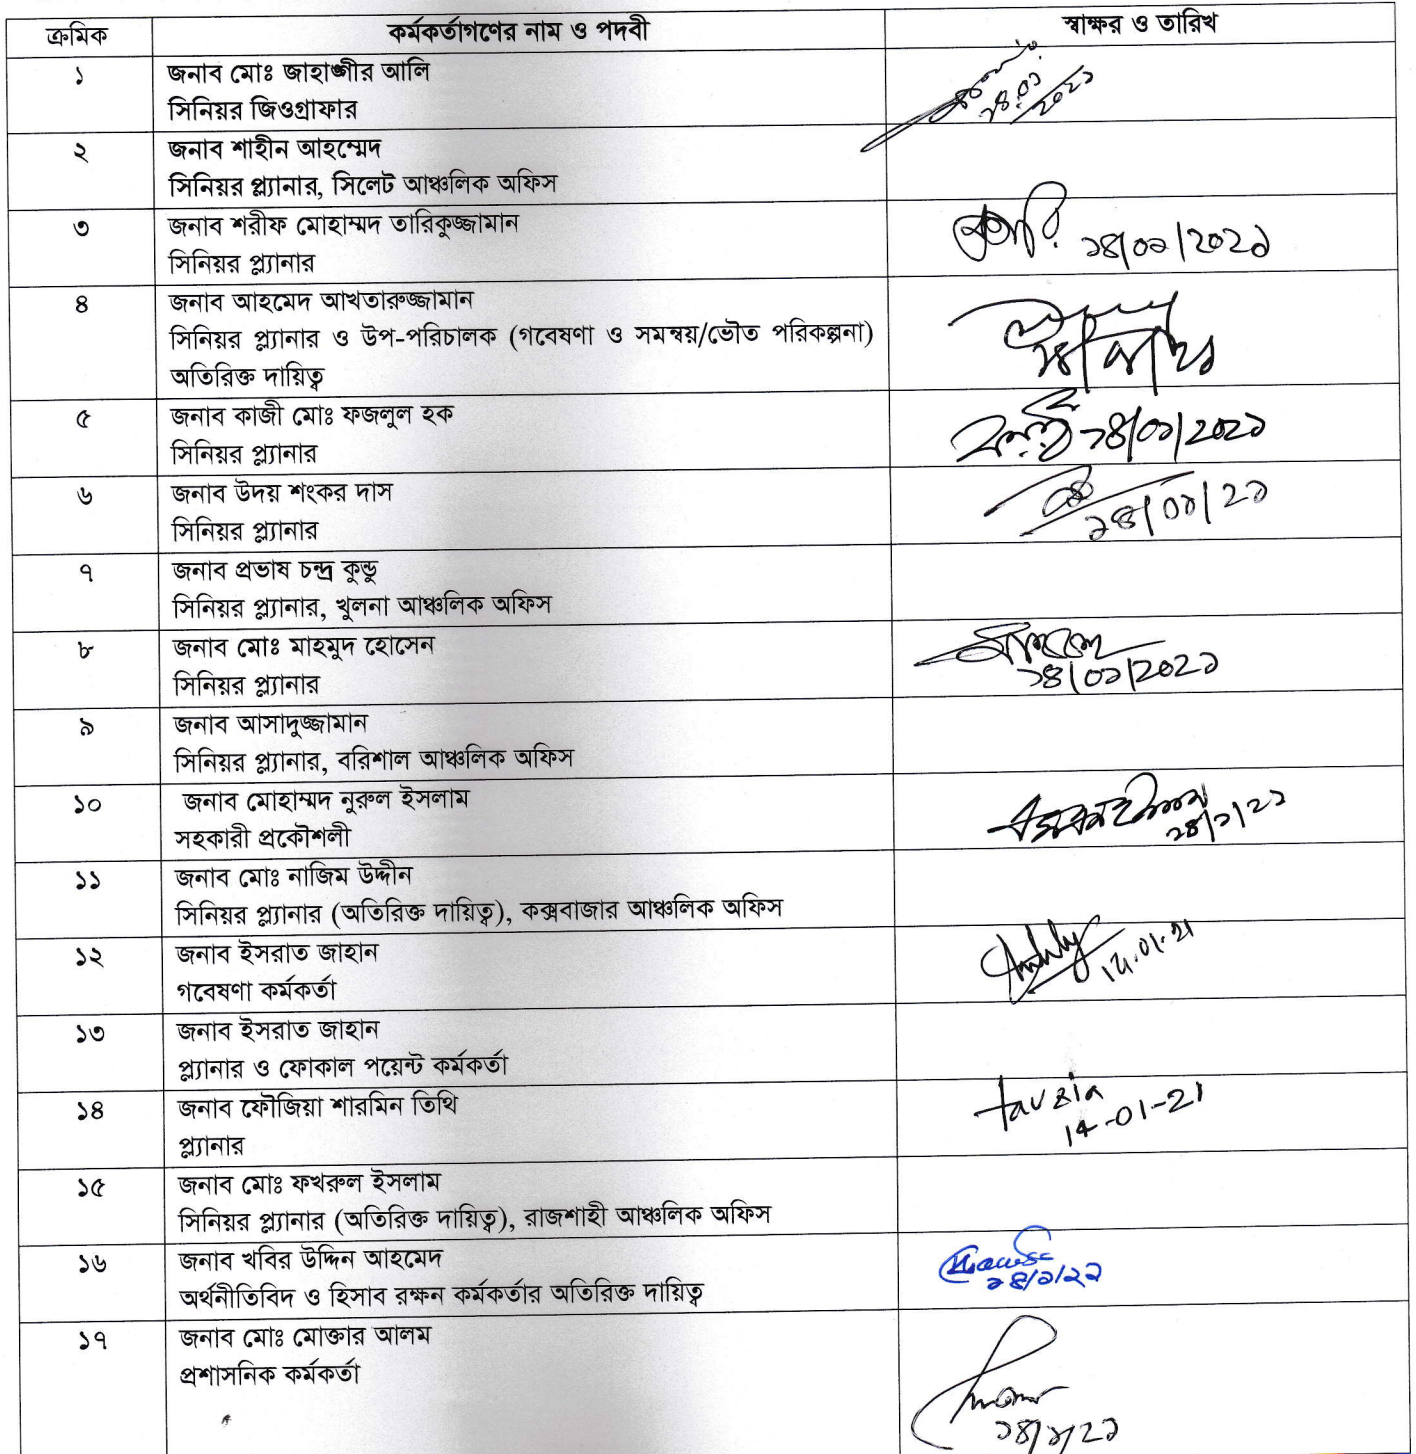 ক্রমিক কর্মকর্তাগণের নাম ও পদবী স্বাক্ষর ও তারিখ
১ জনাব মোঃ জাহাঙ্গীর আলি
সিনিয়র জিওগ্রাফার
১৪.০১
২০২১
২ জনাব শাহীন আহম্মেদ
সিনিয়র প্ল্যানার, সিলেট আঞ্চলিক অফিস
৩ জনাব শরীফ মোহাম্মদ তারিকুজ্জামান
সিনিয়র প্ল্যানার
১৪/০১/২০২১
৪ জনাব আহমেদ আখতারুজ্জামান
সিনিয়র প্ল্যানার ও উপ-পরিচালক (গবেষণা ও সমন্বয়/ভৌত পরিকল্পনা)
অতিরিক্ত দায়িত্ব
৫ জনাব কাজী মোঃ ফজলুল হক
সিনিয়র প্ল্যানার
১৪/০১/২০২১
৬ জনাব উদয় শংকর দাস
সিনিয়র প্ল্যানার
১৪/০১/২১
৭ জনাব প্রভাষ চন্দ্র কুন্ডু
সিনিয়র প্ল্যানার, খুলনা আঞ্চলিক অফিস
৮ জনাব মোঃ মাহমুদ হোসেন
সিনিয়র প্ল্যানার
১৪/০১/২০২১
৯ জনাব আসাদুজ্জামান
সিনিয়র প্ল্যানার, বরিশাল আঞ্চলিক অফিস
১০ জনাব মোহাম্মদ নুরুল ইসলাম
সহকারী প্রকৌশলী
১৪/১/২১
১১ জনাব মোঃ নাজিম উদ্দীন
সিনিয়র প্ল্যানার (অতিরিক্ত দায়িত্ব), কক্সবাজার আঞ্চলিক অফিস
১২ জনাব ইসরাত জাহান
গবেষণা কর্মকর্তা
14.01.21
১৩ জনাব ইসরাত জাহান
প্ল্যানার ও ফোকাল পয়েন্ট কর্মকর্তা
১৪ জনাব ফৌজিয়া শারমিন তিথি
প্ল্যানার
fauzia
14-01-21
১৫ জনাব মোঃ ফখরুল ইসলাম
সিনিয়র প্ল্যানার (অতিরিক্ত দায়িত্ব), রাজশাহী আঞ্চলিক অফিস
১৬ জনাব খবির উদ্দিন আহমেদ
অর্থনীতিবিদ ও হিসাব রক্ষন কর্মকর্তার অতিরিক্ত দায়িত্ব
১৪/১/২১
১৭ জনাব মোঃ মোক্তার আলম
প্রশাসনিক কর্মকর্তা
১৪/১/২১